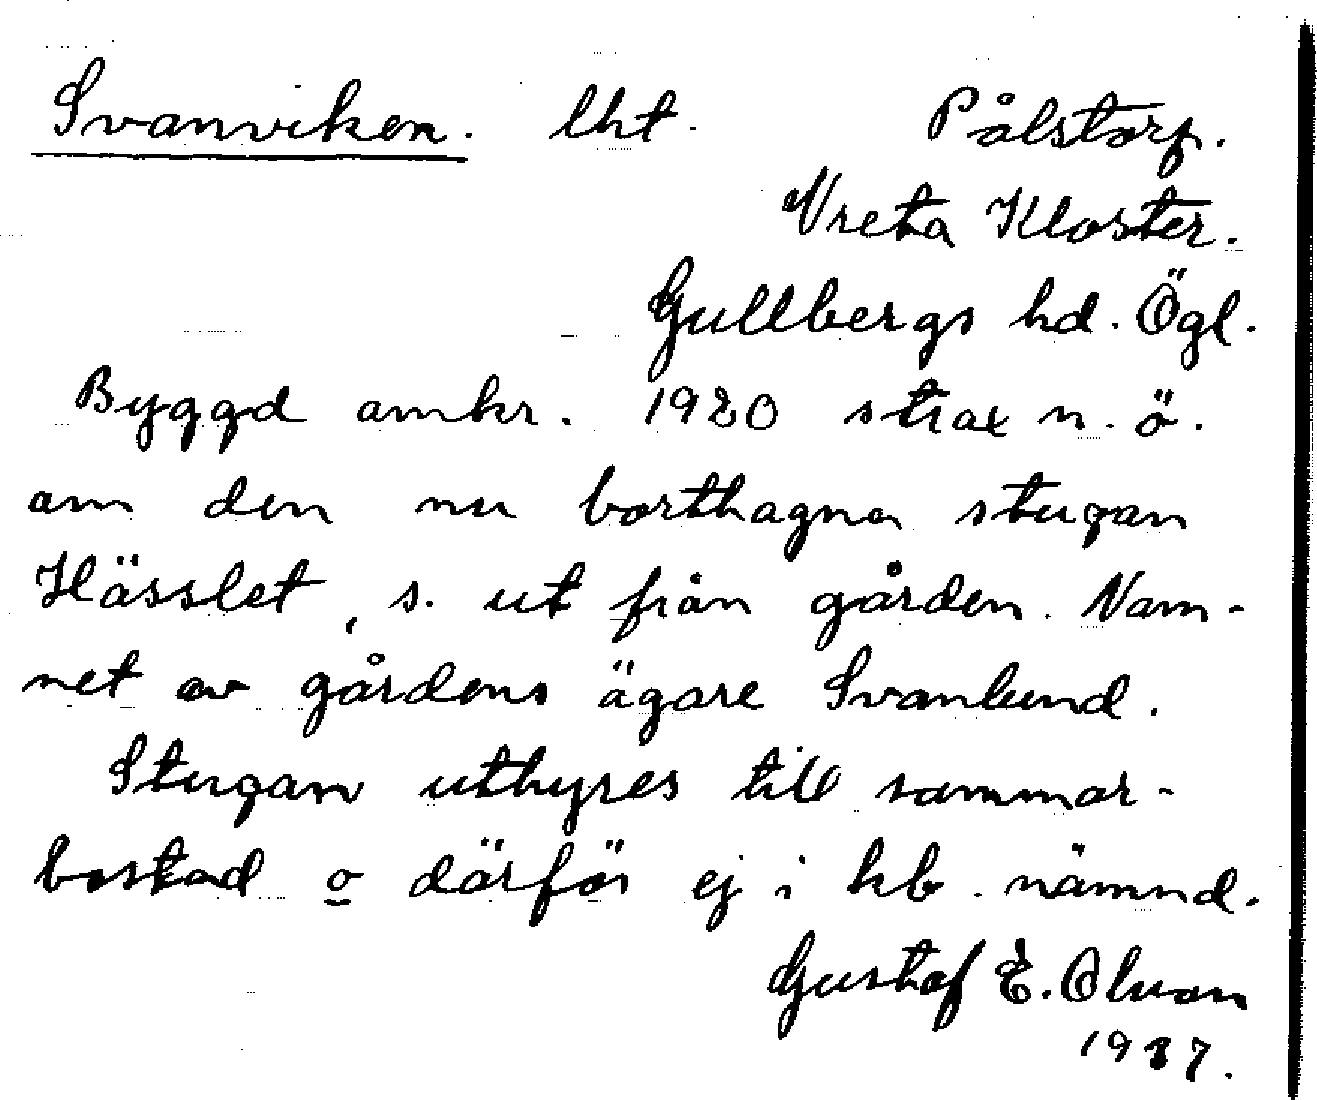 Svanviken. lht. Pålstorp.
Vreta Kloster.
Gullbergs hd. Ögl.
Byggd omkr. 1920 strax n.ö.
om den nu borttagna stugan
Hässlet, s. ut från gården. Nam-
net av gårdens ägare Svanlund.
Stugan uthyres till sommar-
bostad o därför ej i hb. nämnd.
Gustaf E. Olson
1937.